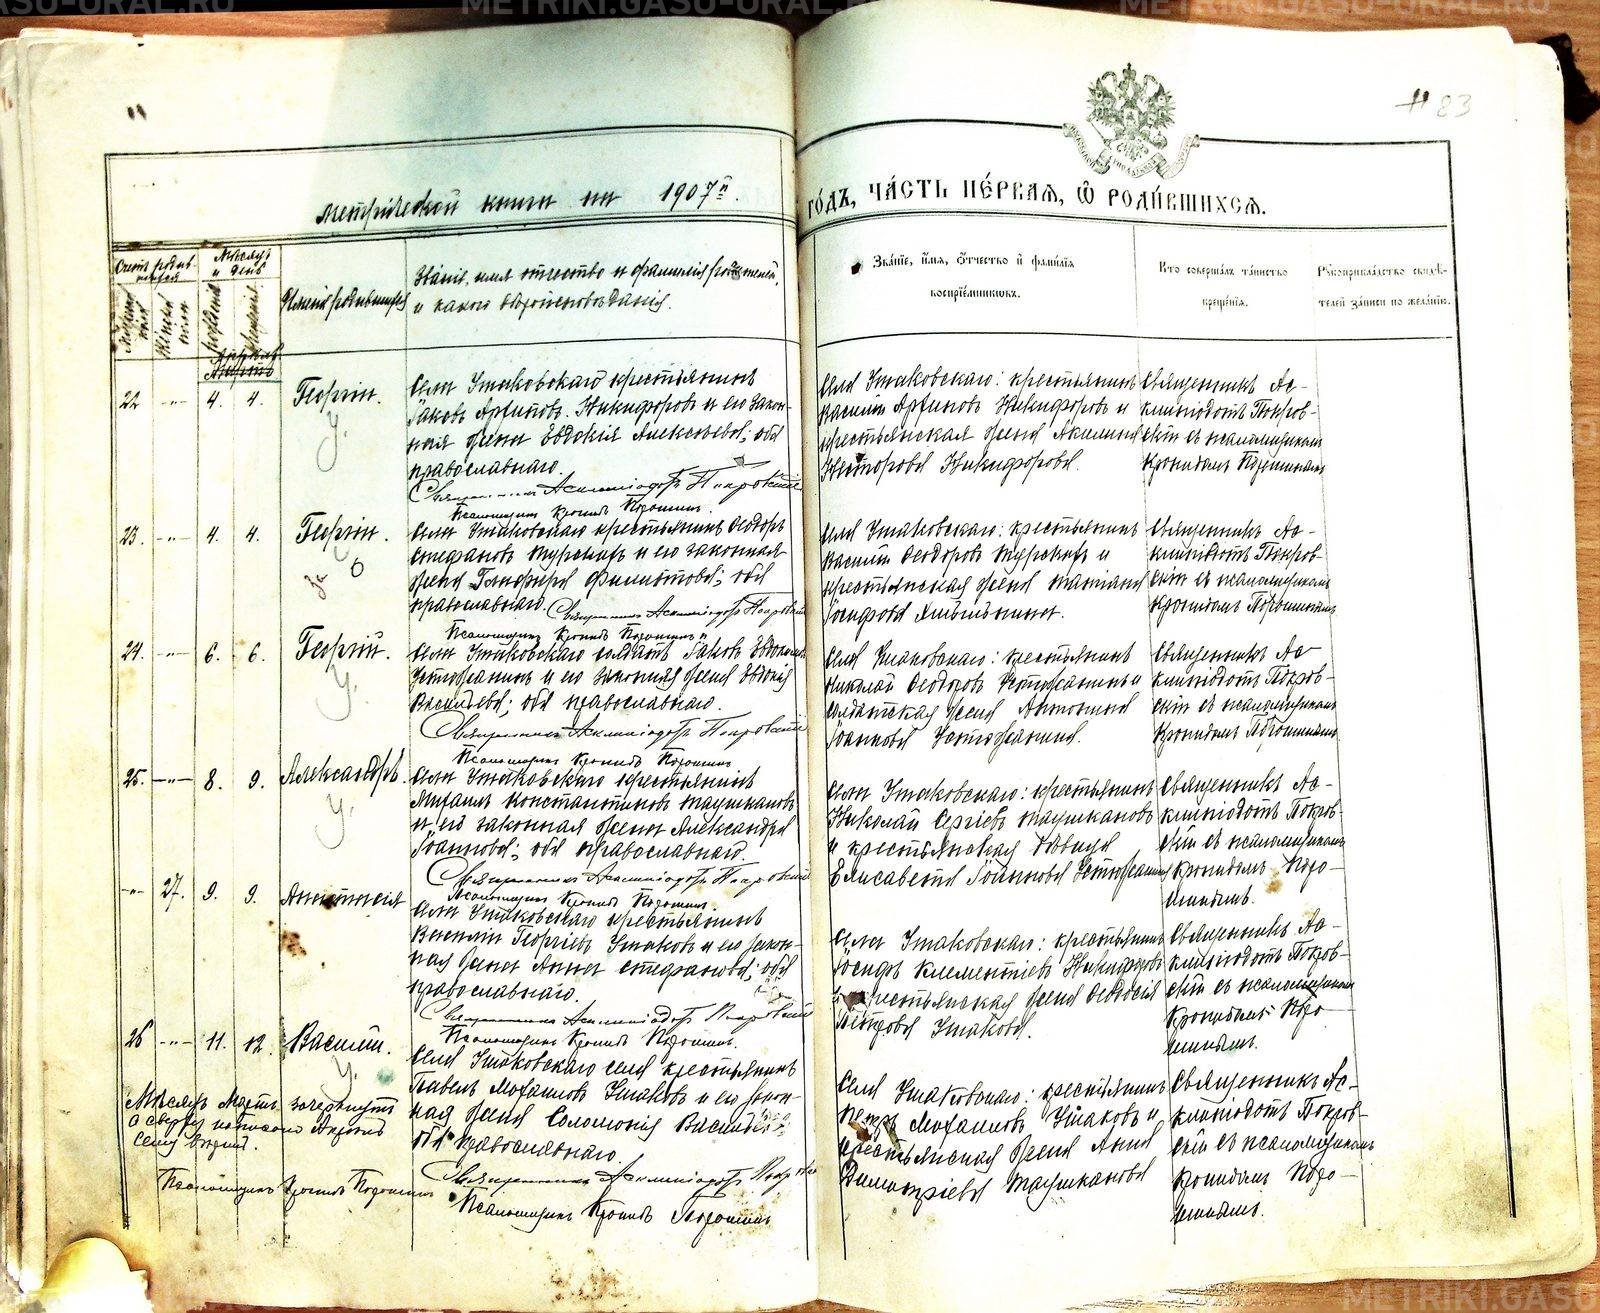 METRIKI.GASU-URAL.RU
83
Метрической книги на 1907й
го́дъ, ча́сть пе́рвая, ѿ роди́вшихся.
Счетъ родив-
Мѣсяцъ
и день
Имена родившихся
Званіе, имя отчество и фамилія родителей,
и какого вѣроисповѣданія.
Зва́нїе, и́мя, ѻ҆́тчество и҆ фами́лїя
воспрїе́мниковъ.
Кто соверша́лъ та́инство
креще́нїя.
Рꙋкоприкла́дство свидѣ́-
телей за́писи по жела́нїю.
Апрѣль
22
4.
4.
Георгій.
Села Ушаковскаго крестьянинъ
Іаковъ Архиповъ Никифоровъ и его закон-
ная жена Евдокія Алексѣева; оба
православнаго.
Священникъ Асклипіодотъ Покровскій
Псаломщикъ Кронидъ Порошинъ.
Села Ушаковскаго: крестьянинъ
Василій Архиповъ Никифоровъ и
крестьянская жена Акилина
Несторова Никифорова.
Священникъ Ас-
клипіодотъ Покров-
скій съ псаломщикомъ
Кронидомъ Порошинымъ
23.
4.
4.
Георгій.
Села Ушаковскаго крестьянинъ Ѳеодоръ
Стефановъ и его законная
жена Филиппова; оба
православнаго. Священникъ Асклипіодотъ Покровскій
Псаломщикъ Кронидъ Порошинъ
Села Ушаковскаго: крестьянинъ
Василій Ѳеодоровъ и
крестьянская жена Татіана
Іосифова
Священникъ Ас-
клипіодотъ Покров-
скій съ псаломщикомъ
Кронидомъ Порошинымъ
24.
6.
6.
Георгій.
Села Ушаковскаго солдатъ Іаковъ
Устюжанинъ и его законная жена Евдокія
Васильева; оба православнаго.
Священникъ Асклипіодотъ Покровскій
Псаломщикъ Кронидъ Порошинъ
Села Ушаковскаго: крестьянинъ
Николай Ѳеодоровъ Устюжанинъ и
солдатская жена
Іоаннова Устюжанина.
Священникъ Ас-
клипіодотъ Покров-
скій съ псаломщикомъ
Кронидомъ Порошинымъ
25.
8.
9.
Александръ.
Села Ушаковскаго крестьянинъ
Михаилъ Константиновъ Таушкановъ
и его законная жена Александра
Іоаннова; оба православнаго.
Священникъ Асклипіодотъ Покровскій
Псаломщикъ Кронидъ Порошинъ.
Села Ушаковскаго: крестьянинъ
Николай Сергіевъ Таушкановъ
и крестьянская дѣвица
Елисавета Іоаннова Устюжанина
Священникъ Ас-
клипіодотъ Покров-
скій съ псаломщикомъ
Кронидомъ Поро-
шинымъ.
27.
9.
9.
Анастасія
Села Ушаковскаго крестьянинъ
Василій Георгіевъ Ушаковъ и его закон-
ная жена Анна Стефанова; оба
православнаго.
Священникъ Асклипіодотъ Покровскій
Псаломщикъ Кронидъ Порошинъ.
Села Ушаковскаго: крестьянинъ
Іосифъ Климентіевъ Никифоровъ
и крестьянская жена Ѳеодосія
Петрова Ушакова.
Священникъ Ас-
клипіодотъ Покров-
скій съ псаломщикомъ
Кронидомъ Поро-
шинымъ.
26
11.
12.
Василій.
Села Ушаковскаго села крестьянинъ
Павелъ Михаиловъ Ушаковъ и его закон-
ная жена Соломонія Васильева
оба православнаго.
Священникъ Асклипіодотъ Покровскій
Псаломщикъ Кронидъ Порошинъ
Села Ушаковскаго: крестьянинъ
Петръ Михаиловъ Ушаковъ и
крестьянская жена Анна
Димитріева Таушканова
Священникъ Ас-
клипіодотъ Покров-
скій съ псаломщикомъ
Кронидомъ Поро-
шинымъ.
Мѣсяцъ Мартъ зачеркнутъ
а сверху написано Апрѣль
сему вѣрить.
Псаломщикъ Кронидъ Порошинъ